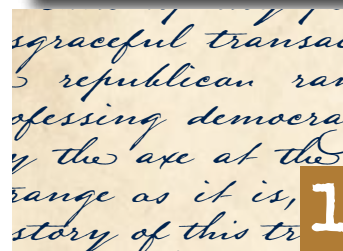 sgraceful transac
republican ran
ofessing democra
y the axe at the
range as it is,
story of this tr
1